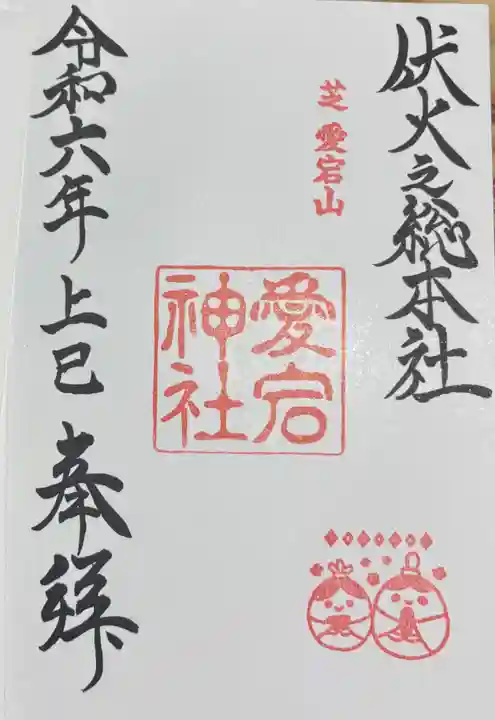 伏火之総本社
芝愛宕山
愛宕
神社
令和六年上巳 奉拝